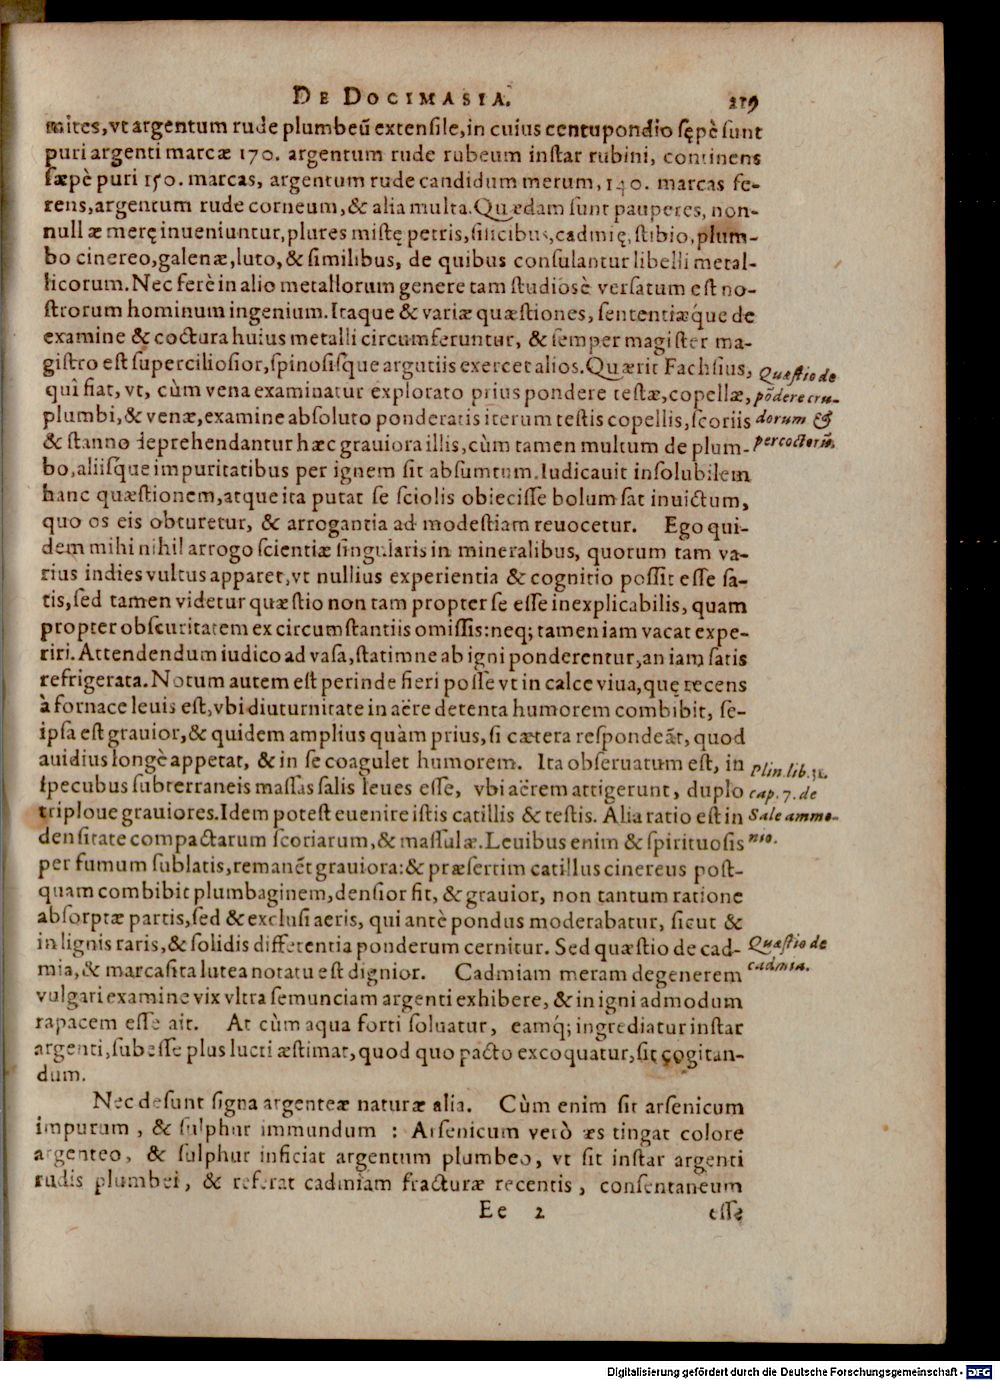 DE DOCIMASIA. 219
mites, vt argentum rude plumbeũ extensile, in cuius centupondio sępè sunt
puri argenti marcæ 170. argentum rude rubeum instar rubini, continens
sæpè puri 150. marcas, argentum rude candidum merum, 140. marcas fe-
rens, argentum rude corneum, & alia multa. Quædam sunt pauperes, non-
nullæ merę inueniuntur, plures mistę petris, silicibus, cadmię, stibio, plum-
bo cinereo, galenæ, luto, & similibus, de quibus consulantur libelli metal-
licorum. Nec ferè in alio metallorum genere tam studiosè versatum est no-
strorum hominum ingenium. Itaque & variæ quæstiones, sententiæque de
examine & coctura huius metalli circumferuntur, & semper magister ma-
gistro est superciliosior, spinosisque argutiis exercet alios. Quærit Fachsius,
qui fiat, vt, cùm vena examinatur explorato prius pondere testæ, copellæ,
plumbi, & venæ, examine absoluto ponderatis iterum testis copellis, scoriis
& stanno deprehendantur hæc grauiora illis, cùm tamen multum de plum-
bo, aliisque impuritatibus per ignem sit absumtum. Iudicauit insolubilem
hanc quæstionem, atque ita putat se sciolis obiecisse bolum sat inuictum,
quo os eis obturetur, & arrogantia ad modestiam reuocetur. Ego qui-
dem mihi nihil arrogo scientiæ singularis in mineralibus, quorum tam va-
rius indies vultus apparet, vt nullius experientia & cognitio possit esse sa-
tis, sed tamen videtur quæstio non tam propter se esse inexplicabilis, quam
propter obscuritatem ex circumstantiis omissis: neq; tamen iam vacat expe-
riri. Attendendum iudico ad vasa, statimne ab igni ponderentur, an iam satis
refrigerata. Notum autem est perinde fieri posse vt in calce viua, quę recens
à fornace leuis est, vbi diuturnitate in aëre detenta humorem combibit, se-
ipsa est grauior, & quidem amplius quàm prius, si cætera respondeãt, quod
auidius longè appetat, & in se coagulet humorem. Ita obseruatum est, in
specubus subterraneis massas salis leues esse, vbi aërem attigerunt, duplo
triploue grauiores. Idem potest euenire istis catillis & testis. Alia ratio est in
densitate compactarum scoriarum, & massulæ. Leuibus enim & spirituosis
per fumum sublatis, remanẽt grauiora: & præsertim catillus cinereus post-
quam combibit plumbaginem, densior fit, & grauior, non tantum ratione
absorptæ partis, sed & exclusi aeris, qui antè pondus moderabatur, sicut &
in lignis raris, & solidis differentia ponderum cernitur. Sed quæstio de cad-
mia, & marcasita lutea notatu est dignior. Cadmiam meram degenerem
vulgari examine vix vltra semunciam argenti exhibere, & in igni admodum
rapacem esse ait. At cùm aqua forti soluatur, eamq́; ingrediatur instar
argenti, subesse plus lucri æstimat, quod quo pacto excoquatur, sit cogitan-
dum.
Nec desunt signa argenteæ naturæ alia. Cùm enim sit arsenicum
impurum, & sulphur immundum : Arsenicum verò æs tingat colore
argenteo, & sulphur inficiat argentum plumbeo, vt sit instar argenti
rudis plumbei, & referat cadmiam fracturæ recentis, consentaneum
Ee 2 esse
Quæstio de
põdere cru-
dorum &
percoctorũ.
Plin. lib. 31.
cap. 7. de
Sale ammo-
nio.
Quæstio de
cadmia.
Digitalisierung gefördert durch die Deutsche Forschungsgemeinschaft - DFG